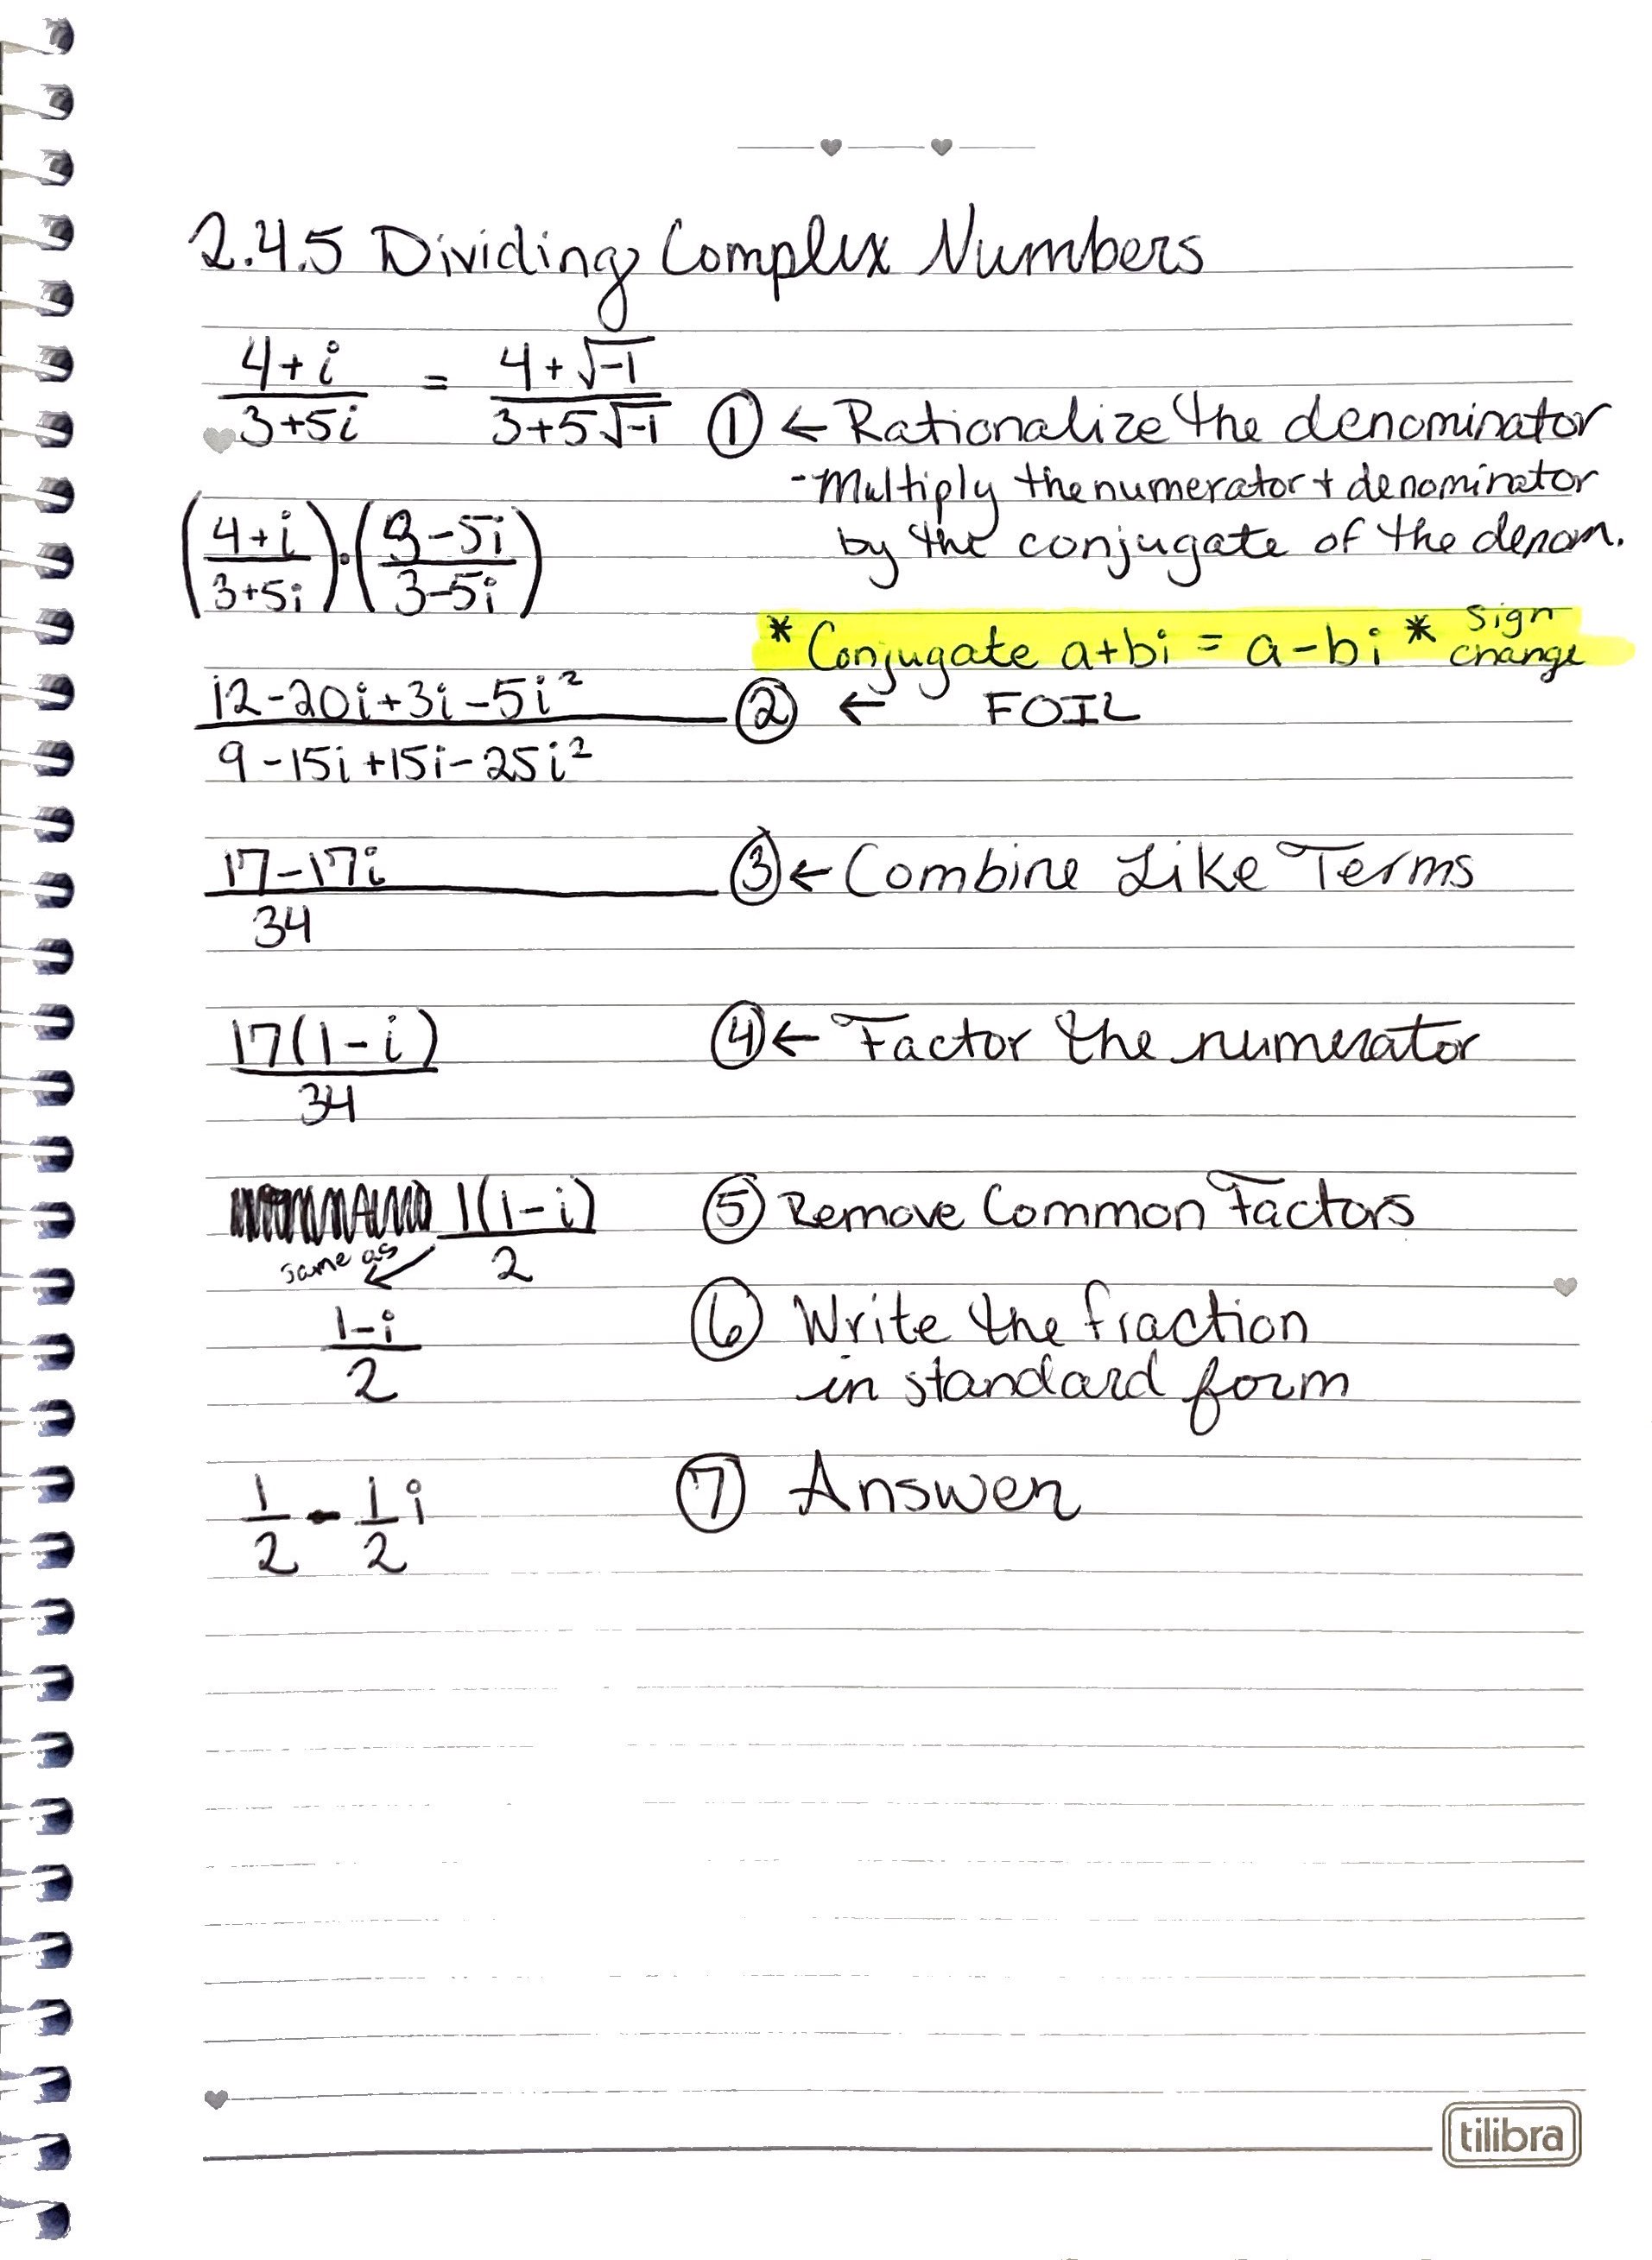 2.4.5 Dividing Complex Numbers
4+i / 3+5i = 4+√-1 / 3+5√-1 ① ← Rationalize the denominator
- Multiply the numerator + denominator
by the conjugate of the denom.
(4+i / 3+5i) · (3-5i / 3-5i)
* Conjugate a+bi = a-bi * sign change
12-20i+3i-5i² / 9-15i+15i-25i² ② ← FOIL
17-17i / 34 ③ ← Combine Like Terms
17(1-i) / 34 ④ ← Factor the numerator
1(1-i) / 2 ⑤ Remove Common Factors
same as
1-i / 2 ⑥ Write the fraction
in standard form
1/2 - 1/2 i ⑦ Answer
tilibra